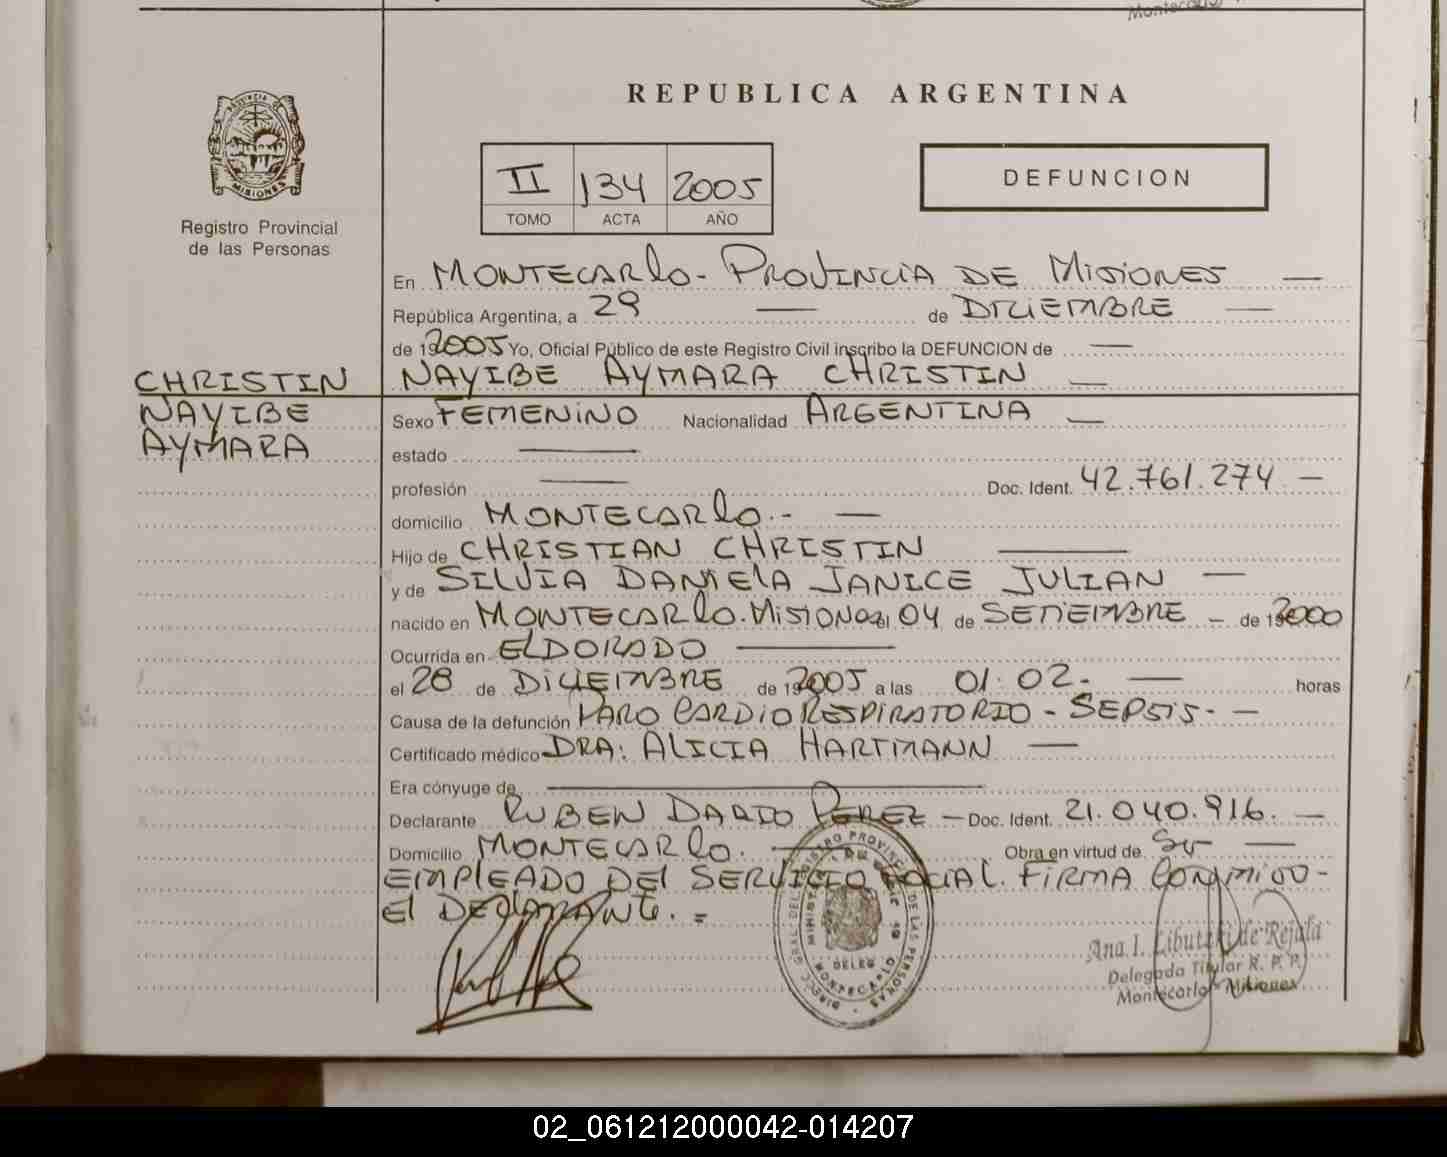 REPUBLICA ARGENTINA
PROVINCIA DE
MISIONES
Registro Provincial
de las Personas
II 134 2005
TOMO ACTA AÑO
DEFUNCION
En MONTECARlo - PROVINCIA DE MISIONES —
República Argentina, a 29 — de DICIEMBRE —
de 192005 Yo, Oficial Público de este Registro Civil inscribo la DEFUNCION de —
CHRISTIN NAYIBE AYMARA
NAYIBE AYMARA CHRISTIN —
Sexo FEMENINO Nacionalidad ARGENTINA —
estado —
profesión — Doc. Ident. 42.761.274 —
domicilio MONTECARlo.- —
Hijo de CHRISTIAN CHRISTIN —
y de SILVIA DANIElA JANICE JULIAN —
nacido en MONTECARlo. MISIONES el 04 de SETIEMBRE - de 192000
Ocurrida en ELDORADO —
el 28 de DICIEMBRE de 192005 a las 01:02.- — horas
Causa de la defunción PARO CARDIORESPIRATORIO - SEPSIS - —
Certificado médico DRA: ALICIA HARTMANN —
Era cónyuge de —
Declarante RUBEN DARIO PEREZ — Doc. Ident. 21.040.916. —
Domicilio MONTECARlo. — Obra en virtud de Su —
EMPLEADO DEl SERVICIO SOCIAL. FIRMA CONMIGO -
El DEClARANTE. =
DELEG
MONTECARLO
Ana I. Libutzki de Rejala
Delegada Titular R. P. P.
Montecarlo - Misiones
02_061212000042-014207